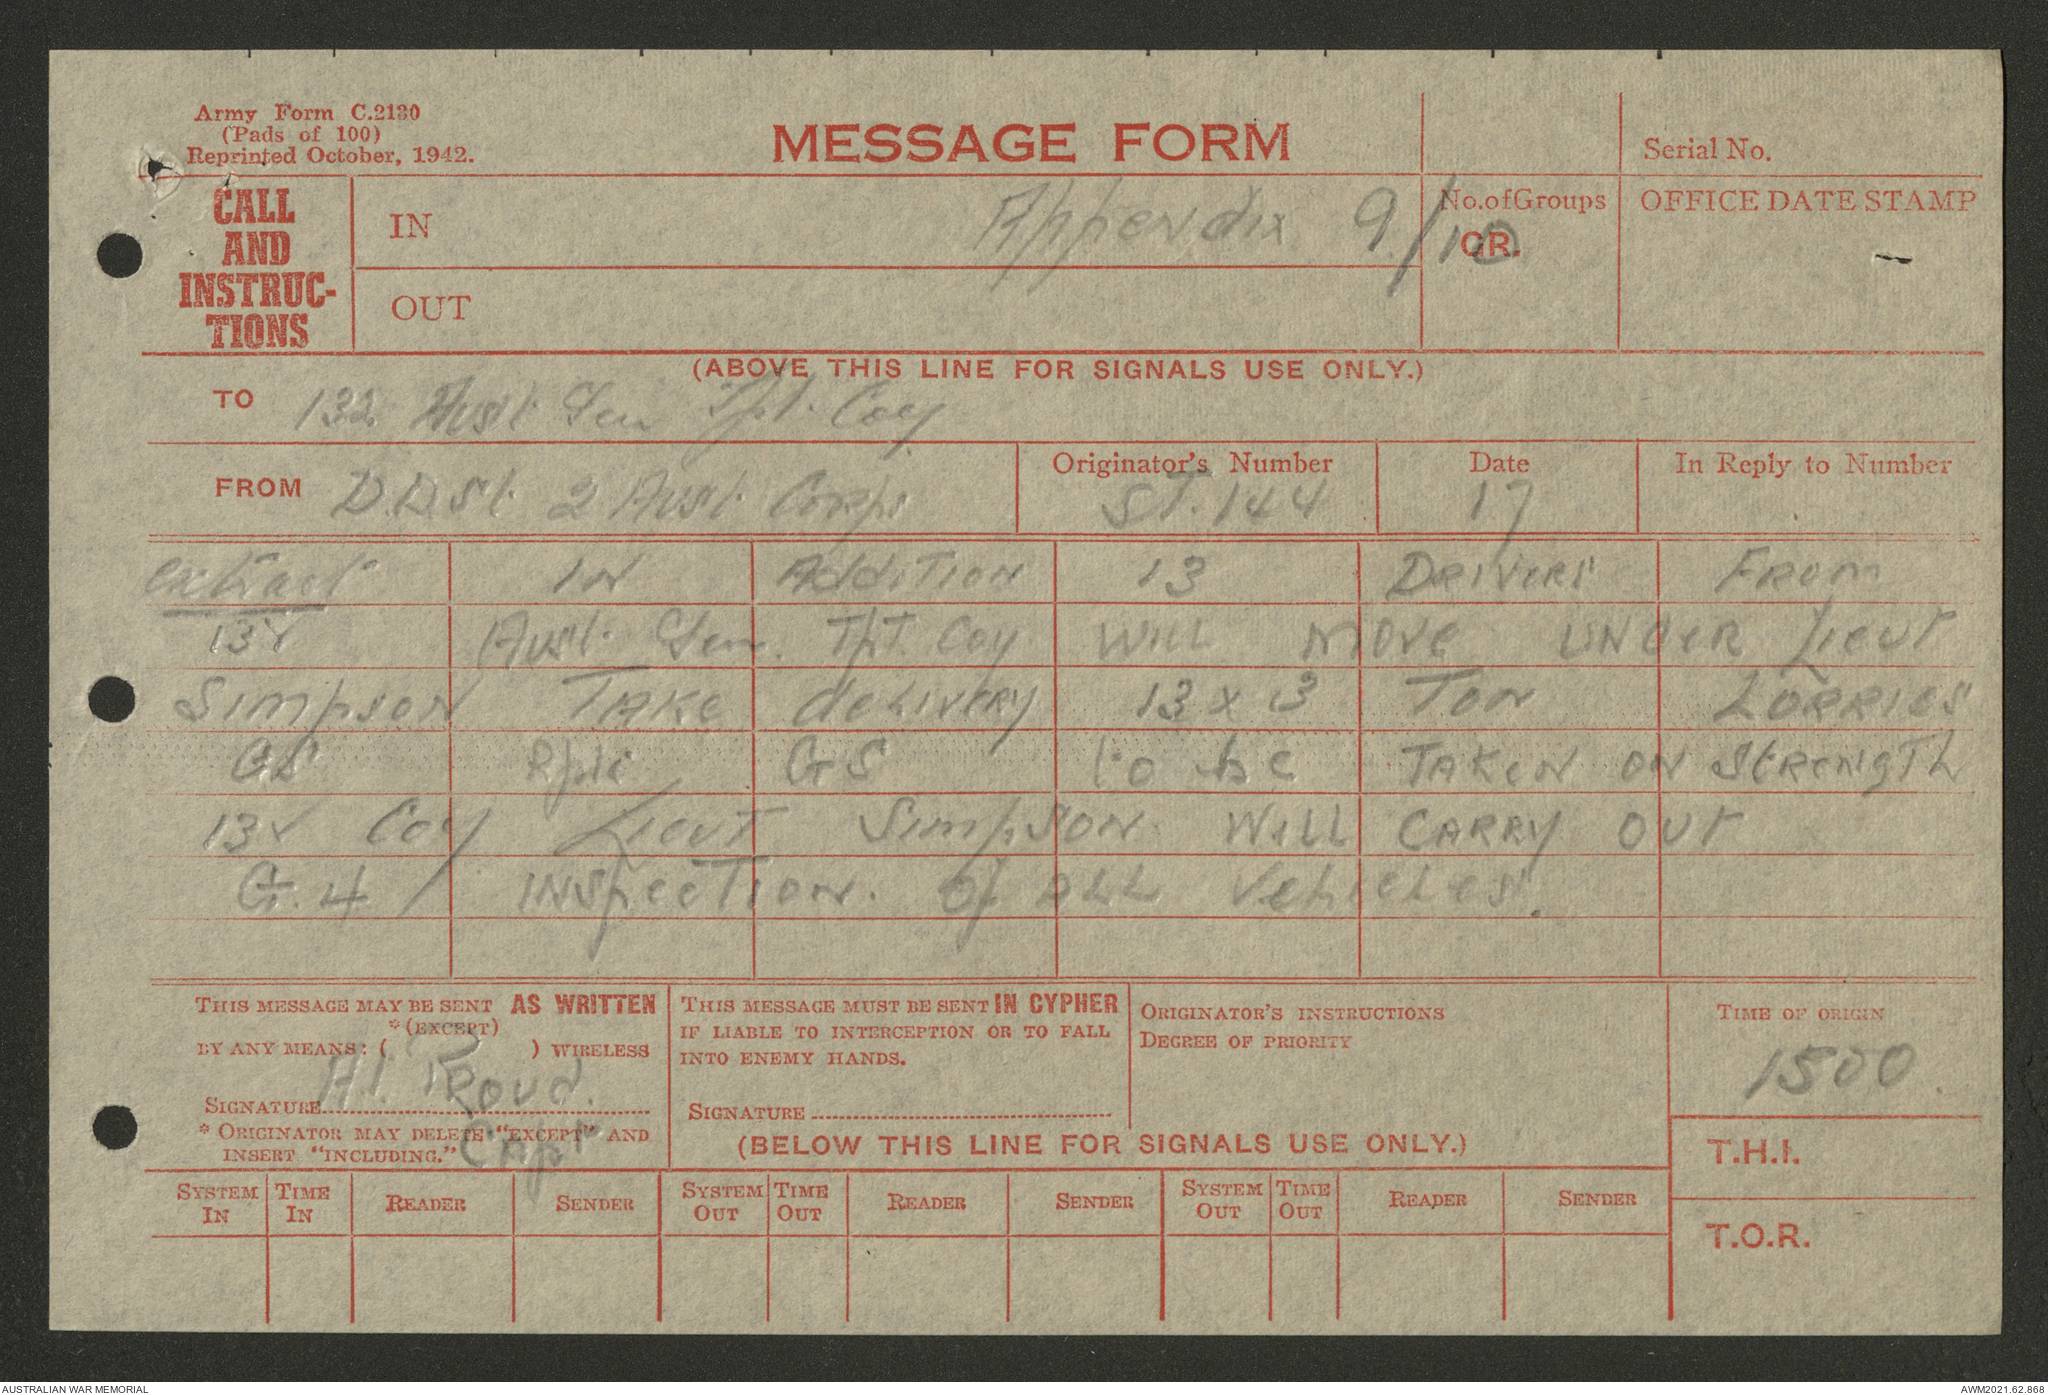 Army Form C.2130
(Pads of 100)
Reprinted October, 1942.
MESSAGE FORM
Serial No.
CALL
AND
INSTRUC-
TIONS
IN
Appendix 9/10
No.of Groups
GR.
OFFICE DATE STAMP
OUT
(ABOVE THIS LINE FOR SIGNALS USE ONLY.)
TO 132 Aust Gen Tpt. Coy
FROM D.D.St. 2 Aust. Corps
Originator's Number
ST.144
Date
17
In Reply to Number
extract IN ADDITION 13 DRIVERS FROM
132 Aust. Gen. TpT. Coy WILL MOVE UNDER Lieut
SIMPSON TAKE deLIVERY 13 x 3 TON LORRIES
GS GS to be TAKEN ON STRENGTH
132 Coy Lieut SIMPSON WILL CARRY OUT
G.4 INSPECTION. Of ALL VeHICLES.
THIS MESSAGE MAY BE SENT AS WRITTEN
*(EXCEPT)
BY ANY MEANS: ( ) WIRELESS
SIGNATURE Proud.
Capt
* ORIGINATOR MAY DELETE "EXCEPT" AND
INSERT "INCLUDING."
THIS MESSAGE MUST BE SENT IN CYPHER
IF LIABLE TO INTERCEPTION OR TO FALL
INTO ENEMY HANDS.
SIGNATURE
ORIGINATOR'S INSTRUCTIONS
DEGREE OF PRIORITY
TIME OF ORIGIN
1500.
(BELOW THIS LINE FOR SIGNALS USE ONLY.)
T.H.I.
T.O.R.
SYSTEM IN TIME IN READER SENDER SYSTEM OUT TIME OUT READER SENDER SYSTEM OUT TIME OUT READER SENDER
AUSTRALIAN WAR MEMORIAL
AWM2021.62.868